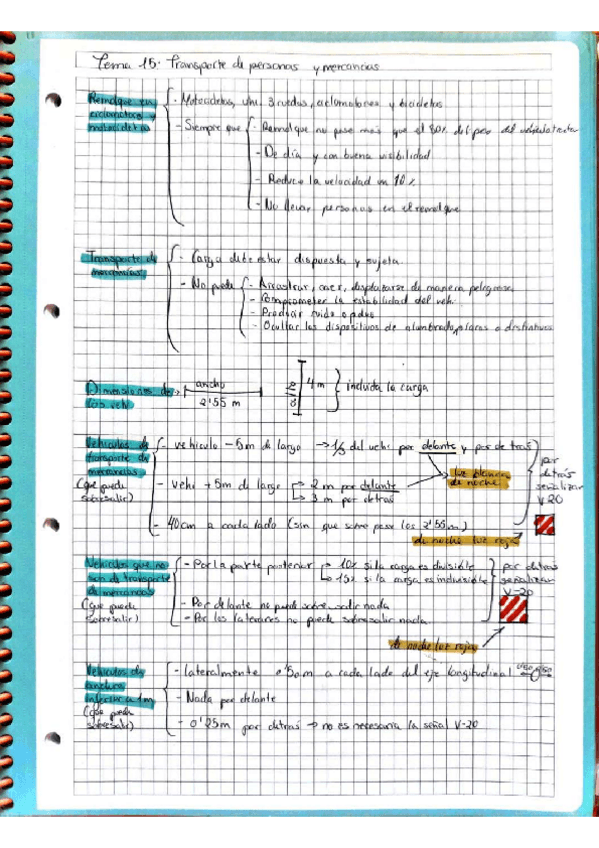 Tema 15. Transporte de personas y mercancías
Remolque en
ciclomotores y
motocicletas
- Motocicletas, vehi. 3 ruedas, ciclomotores y bicicletas
- Siempre que
- Remolque no pese más que el 50% del peso del vehículo tractor
- De día y con buena visibilidad
- Reduce la velocidad un 10%
- No llevar personas en el remolque
Transporte de
mercancías
- Carga debe estar dispuesta y sujeta.
- No puede
- Arrastrar, caer, desplazarse de manera peligrosa
- Comprometer la estabilidad del vehi.
- Producir ruido o polvo
- Ocultar los dispositivos de alumbrado, placas o distintivos
Dimensiones de
los vehi
ancho
2'55 m
alto
4 m
incluida la carga
Vehículos de
transporte de
mercancías
(que puede
sobresalir)
- vehículo -5m de largo → 1/3 del vehi por delante y por detrás
luz blanca
de noche
- vehi +5m de largo
2 m por delante
3 m por detrás
- 40cm a cada lado (sin que sobre pase los 2'55m)
por
detrás
señalizar
V 20
de noche luz roja
Vehículos que no
son de transporte
de mercancías
(que puede
sobresalir)
- Por la parte posterior
10% si la carga es divisible
15% si la carga es indivisible
- Por delante no puede sobresalir nada
- Por los laterales no puede sobresalir nada
por detrás
señalizar
V-20
de noche luz roja
Vehículos de
anchura
inferior a 1m
(que puede
sobresalir)
- lateralmente 0'50m a cada lado del eje longitudinal
0'50 0'50
- Nada por delante
- 0'25m por detrás → no es necesaria la señal V-20